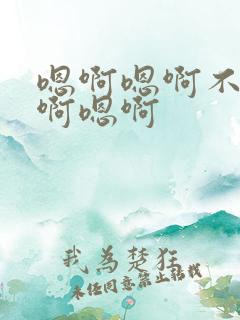 嗯啊嗯啊不
啊嗯啊
我为楚狂
未经同意禁止转载